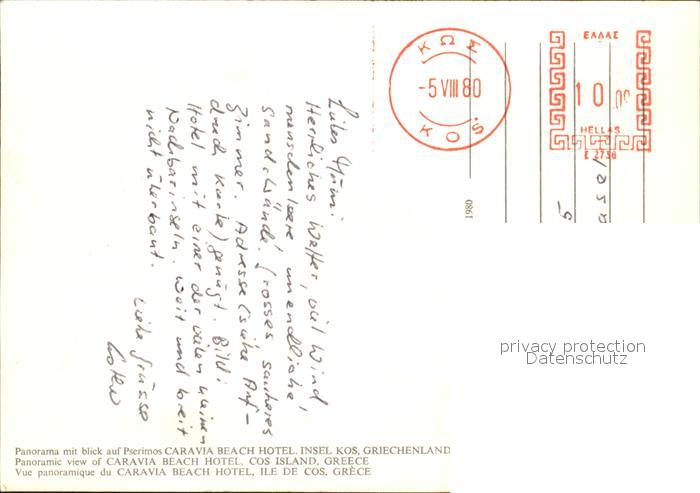 ΚΩΣ
-5 VIII 80
KOS
ΕΛΛΑΣ
10 00
HELLAS
E 2738
1980
Herrliches Wetter, viel Wind,
menschenleere, unendliche
Sandstrände. Grosses sauberes
Zimmer. Adresse (siehe Auf-
druck Karte) genügt. Bild:
Hotel mit einer der vielen kleinen
Nachbarinseln. Weit und breit
nicht überbaut.
Liebe Grüsse
privacy protection
Datenschutz
Panorama mit blick auf Pserimos CARAVIA BEACH HOTEL. INSEL KOS, GRIECHENLAND
Panoramic view of CARAVIA BEACH HOTEL, COS ISLAND, GREECE
Vue panoramique du CARAVIA BEACH HOTEL, ILE DE COS, GRÈCE